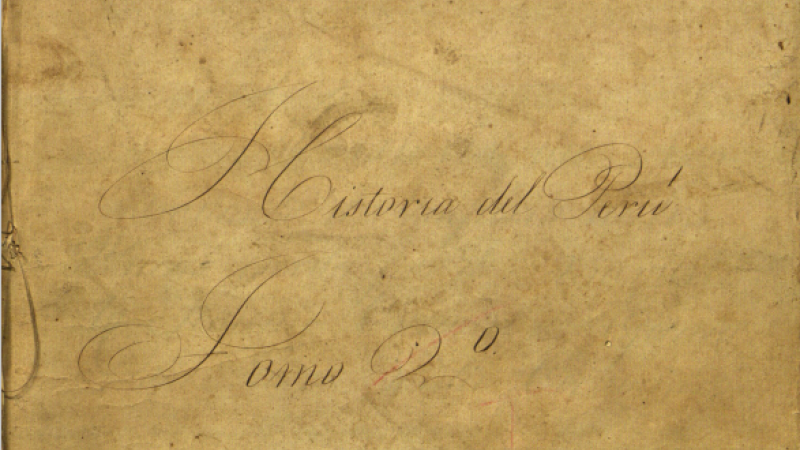 Historia del Perú
Tomo 2º